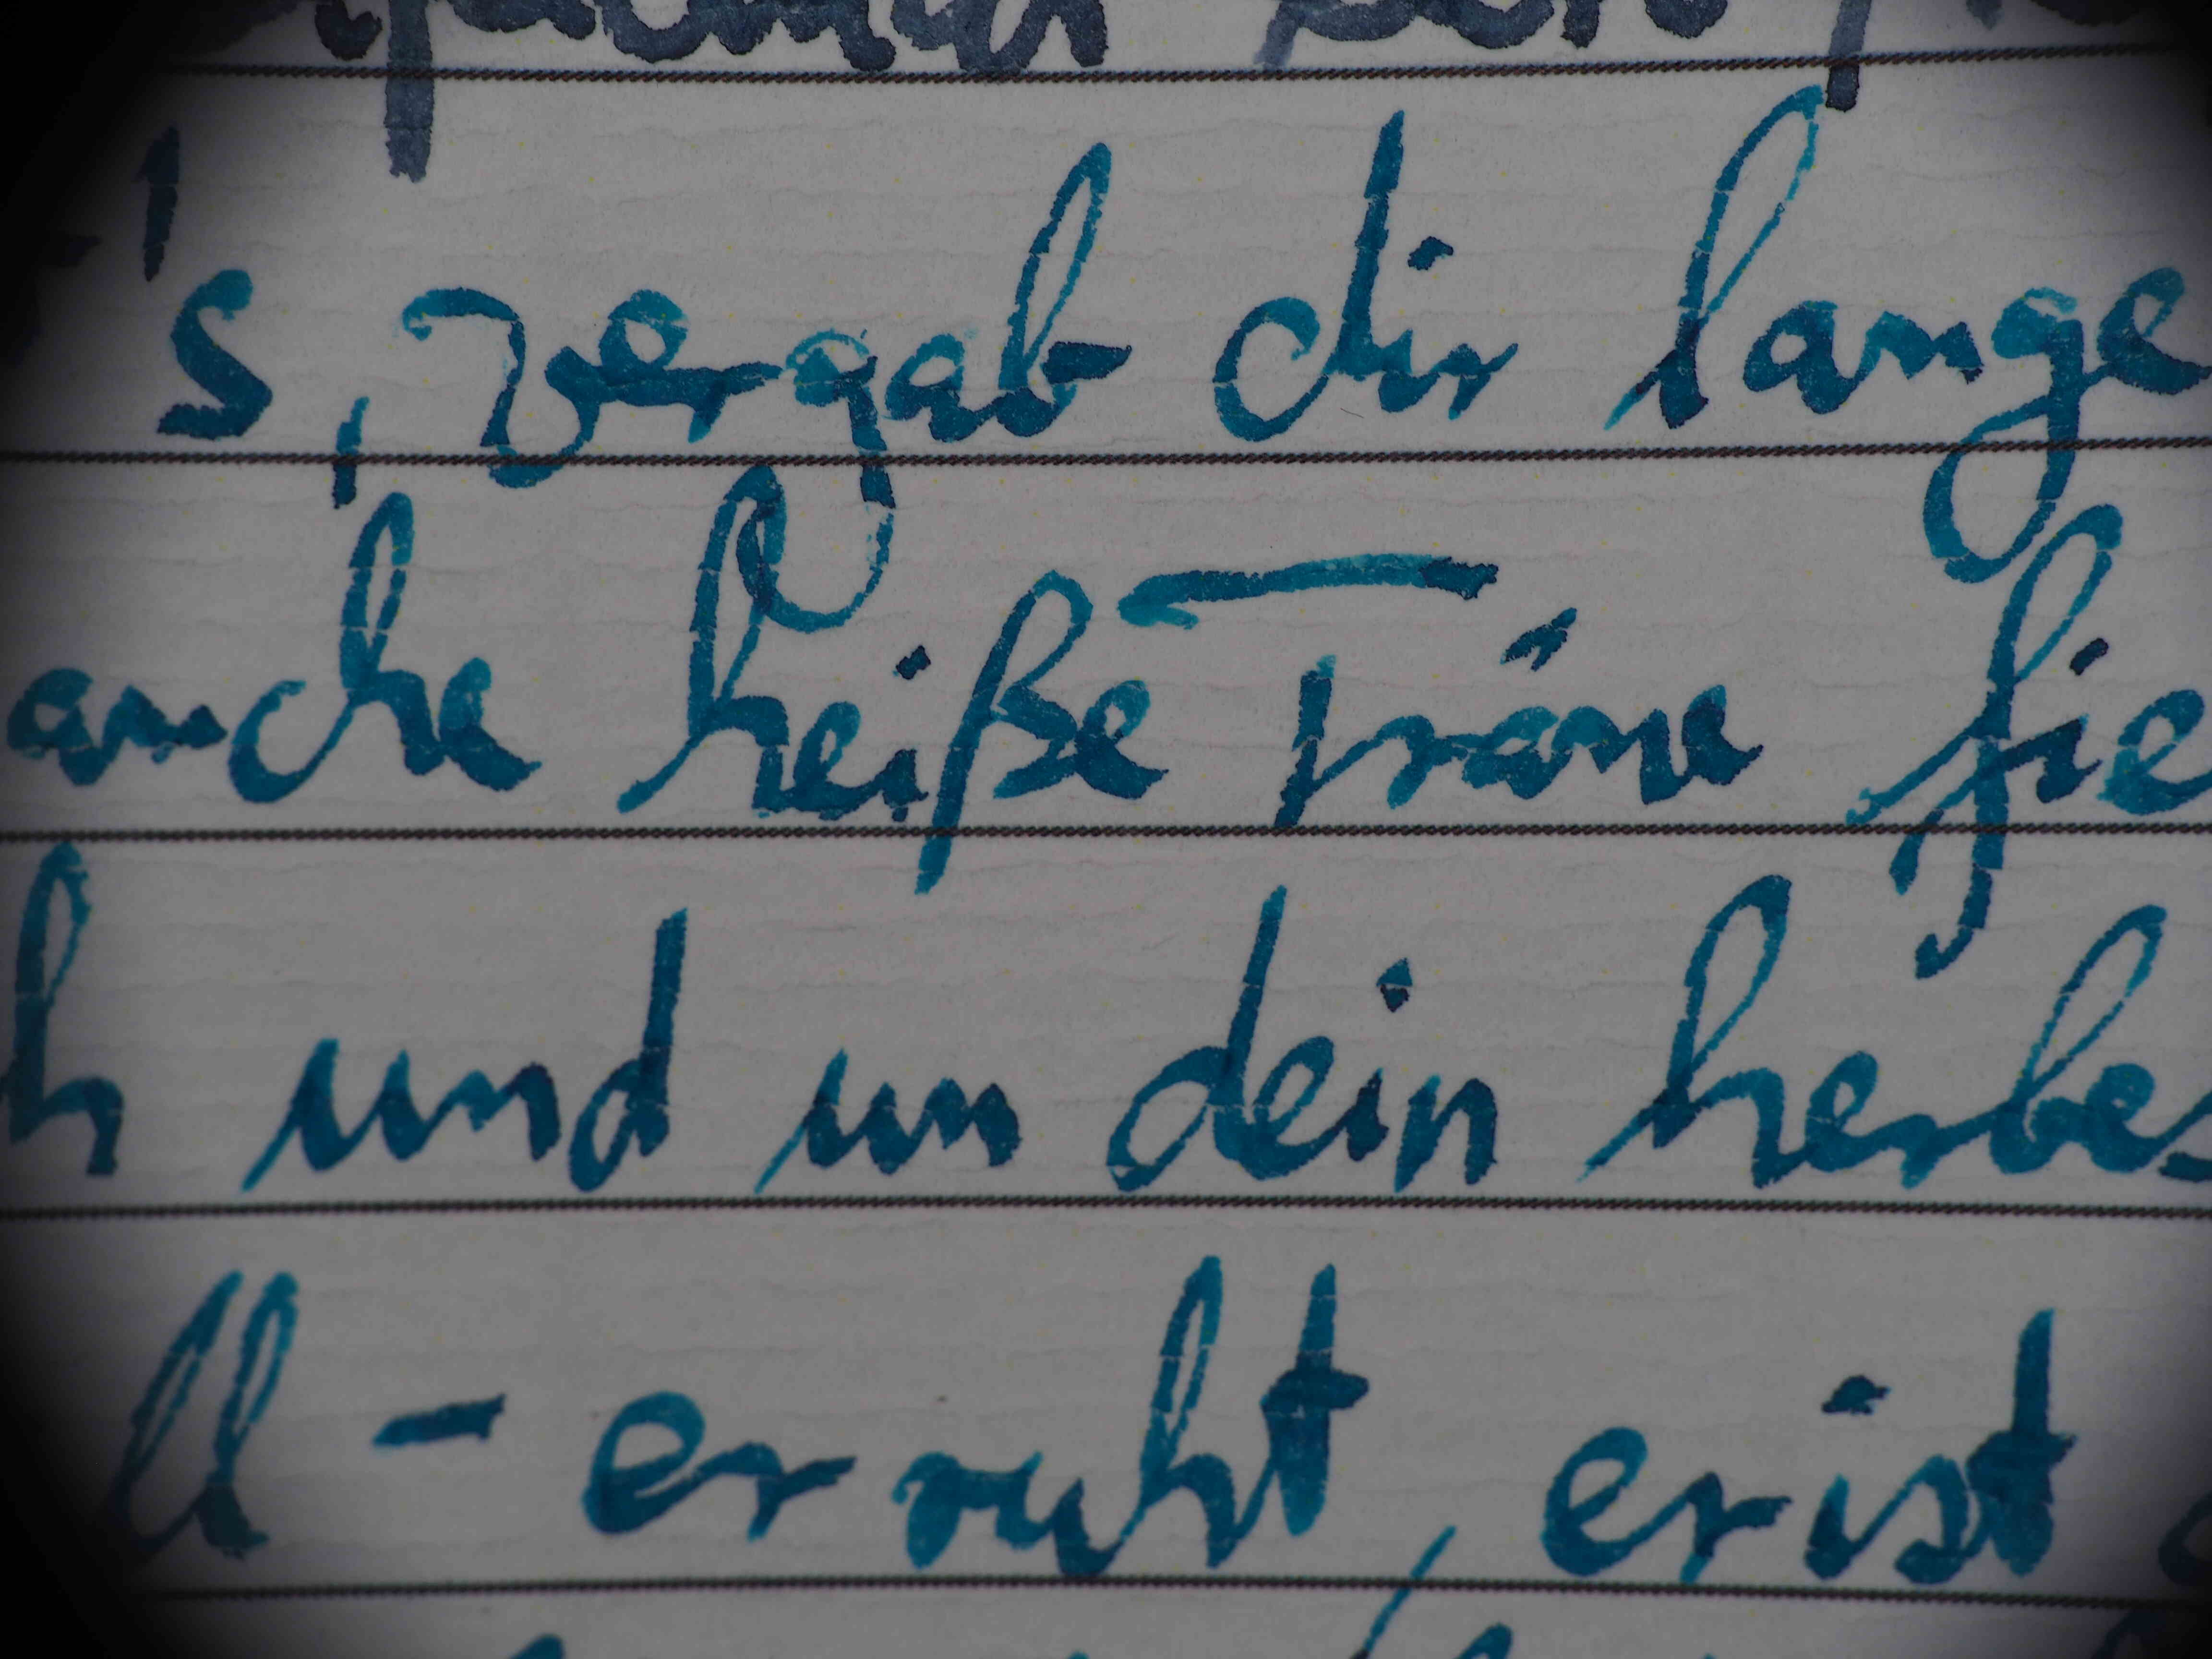 's, vergab dir lange
anche heiße Träne fie
h und um dein herbes
ll - er ruht, er ist